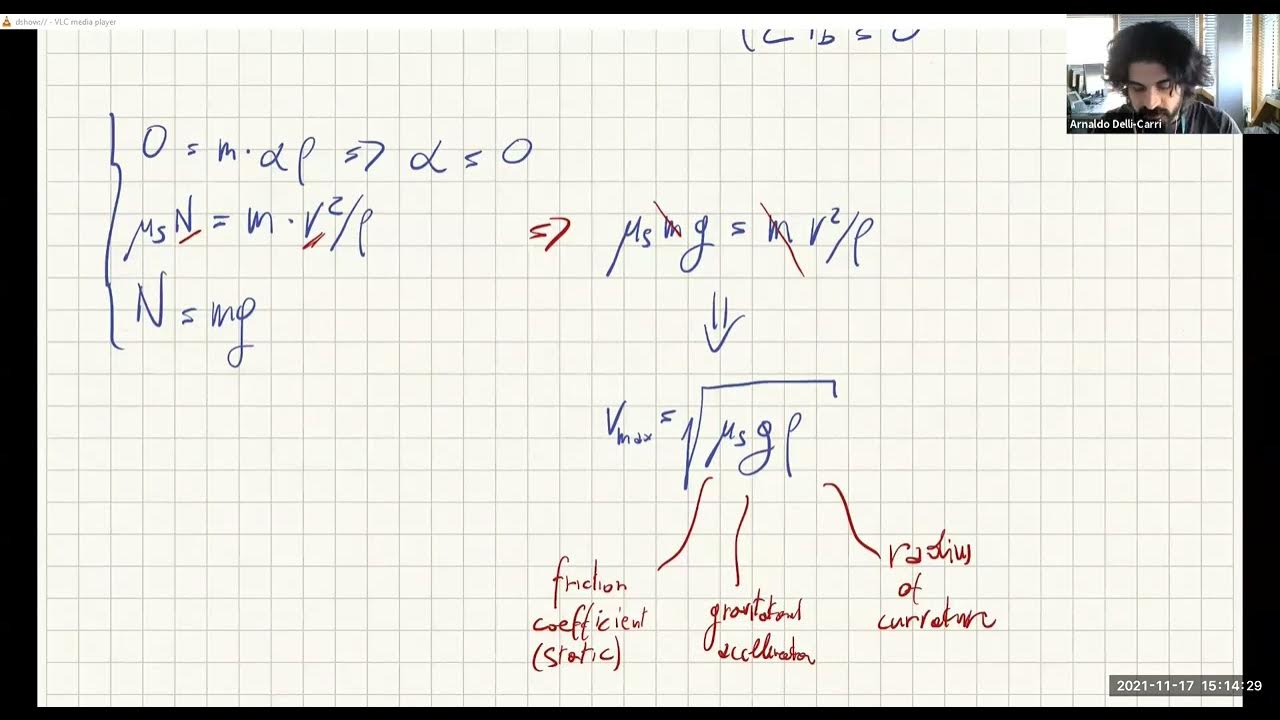 dshow:// - VLC media player
Arnaldo Delli-Carri
0 = m · α ρ ⇒ α = 0
μs N = m · v²/ρ ⇒ μs m g = m v²/ρ
N = mg
⇓
Vmax = √μs g ρ
friction
coefficient
(static)
gravitational
acceleration
radius
of
curvature
2021-11-17 15:14:29